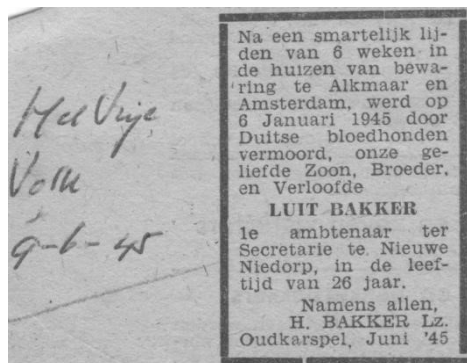 Het Vrije
Volk
9-6-45
Na een smartelijk lij-
den van 6 weken in
de huizen van bewa-
ring te Alkmaar en
Amsterdam, werd op
6 Januari 1945 door
Duitse bloedhonden
vermoord, onze ge-
liefde Zoon, Broeder,
en Verloofde
LUIT BAKKER
1e ambtenaar ter
Secretarie te Nieuwe
Niedorp, in de leef-
tijd van 26 jaar.
Namens allen,
H. BAKKER Lz.
Oudkarspel, Juni '45